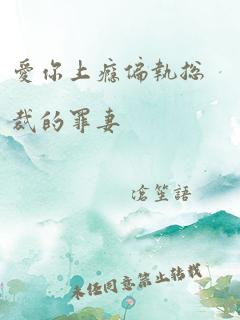 愛你上癮偏執總
裁的罪妻
滄笙語
未經同意禁止轉載